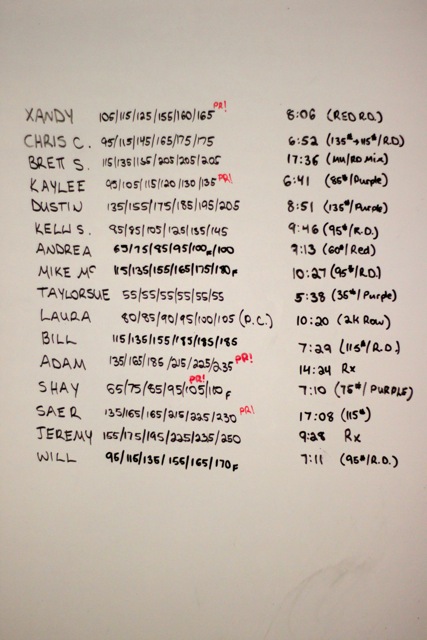 XANDY 105/115/125/155/160/165 PR! 8:06 (RED R.D.)
CHRIS C. 95/115/145/165/175/175 6:52 (135#→115#/R.D)
BRETT S. 115/135/155/205/205/205 17:36 (MU/RD Mix)
KAYLEE 95/105/115/120/130/135 PR! 6:41 (85#/Purple)
DUSTIN 135/155/175/185/195/205 8:51 (135#/Purple)
KELLI S. 85/85/105/125/135/145 9:46 (95#/R.D.)
ANDREA 65/75/85/95/100F/100 9:13 (60#/Red)
MIKE Mc 115/135/155/165/175/180F 10:27 (95#/R.D.)
TAYLORSUE 55/55/55/55/55/55 5:38 (35#/Purple)
LAURA 80/85/90/95/100/105 (P.C.) 10:20 (2K Row)
BILL 115/135/155/185/185/185 7:29 (115#/R.D.)
ADAM 135/165/185/215/225/235 PR! 14:24 Rx
SHAY 65/75/85/95/105/110F PR! 7:10 (75#/PURPLE)
SAER 135/165/165/215/225/230 PR! 17:08 (115#)
JEREMY 155/175/195/225/235/250 9:28 Rx
WILL 95/115/135/155/165/170F 7:11 (95#/R.D.)